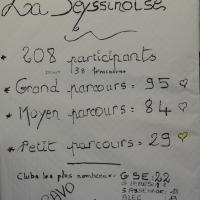 La Seyssinoise
* 208 participants
dont 38 féminines
* Grand parcours = 95 ♡
* Moyen parcours = 84 ♡
* Petit parcours = 29 ♡
Clubs les plus nombreux: GSE: 22
BRAVO